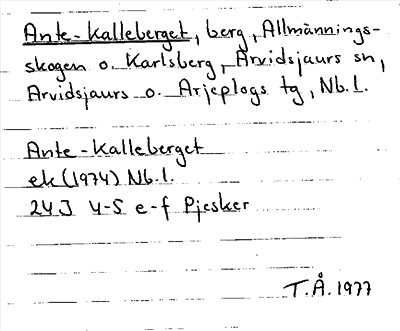 Ante-Kalleberget, berg, Allmännings-
skogen o. Karlsberg, Arvidsjaurs sn,
Arvidsjaurs o. Arjeplogs tg, Nb.l.
Ante-Kalleberget
ek (1974) Nb.l.
24J 4-5 e-f Pjesker
T.Å. 1977